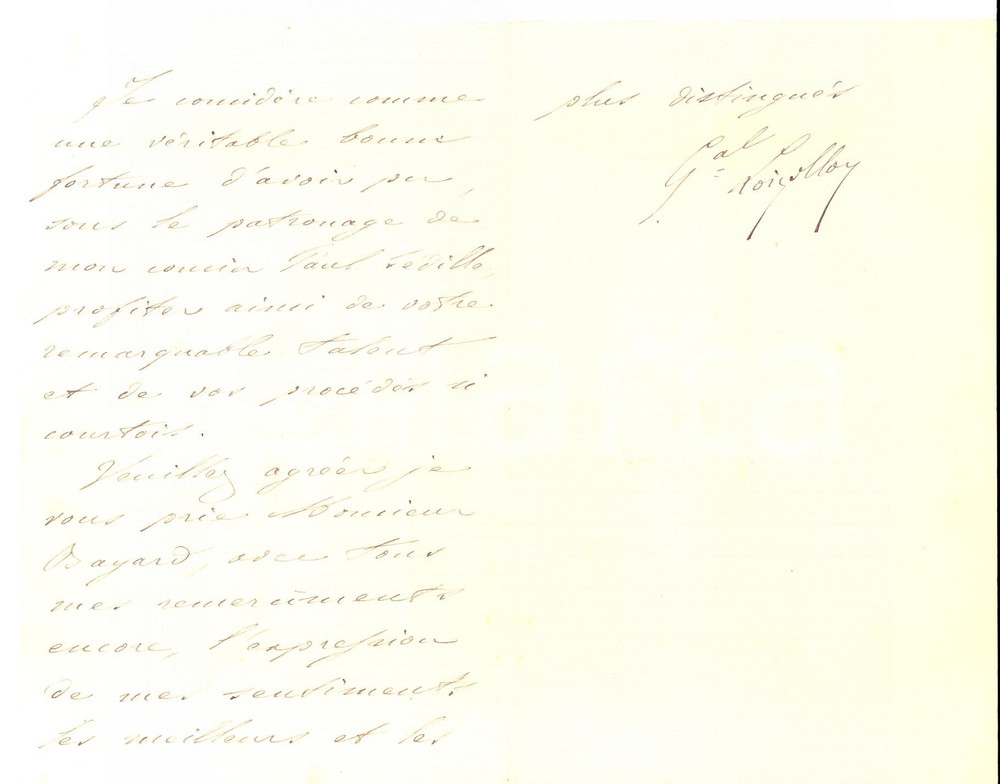 Je considère comme
une véritable bonne
fortune d'avoir pu,
sous le patronage de
mon cousin Paul Sédille,
profiter ainsi de votre
remarquable talent
et de vos procédés si
courtois.
Veuillez agréer je
vous prie Monsieur
Bayard, avec tous
mes remerciments
encore, l'expression
de mes sentiments
les meilleurs et les
plus distingués
Gal Loizillon